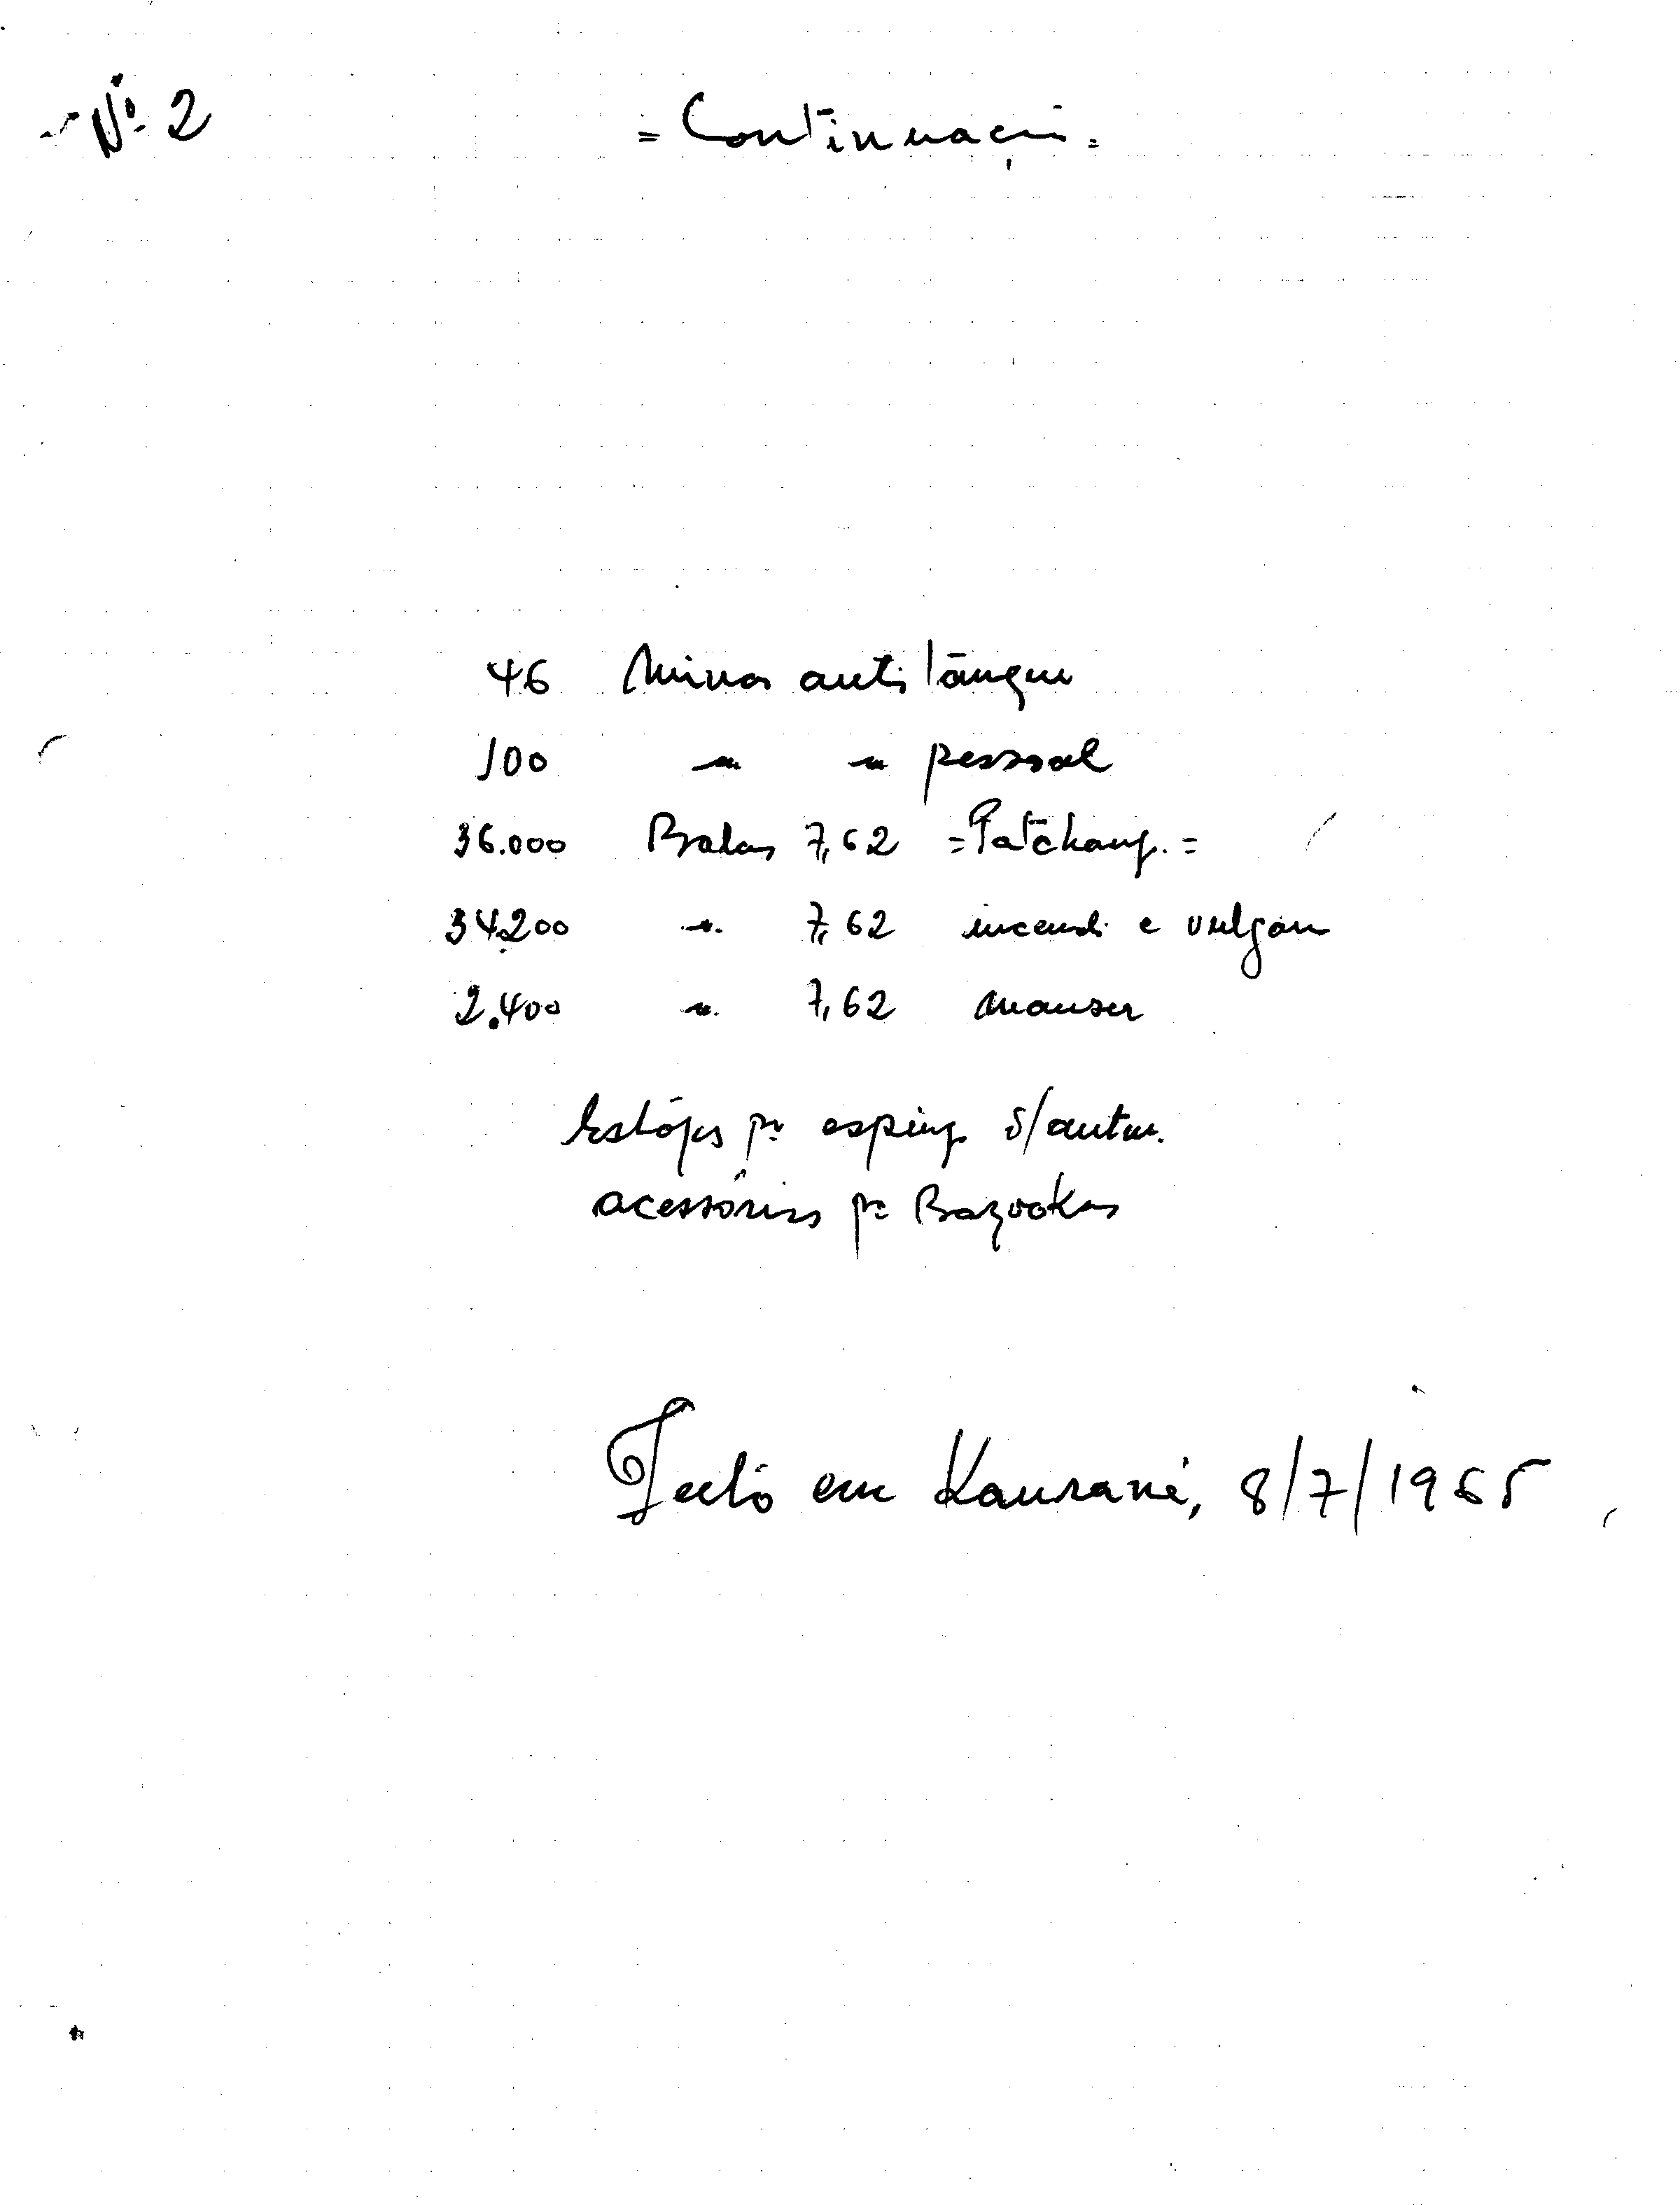 Nº 2
= Continuação =
46 Minas anti tânque
100 " " pessoal
36.000 Balas 7,62 = Patchang. =
34.200 " 7,62 incendi e vulgar
2.400 " 7,62 mauser
Estójos pª esping. s/autom.
acessórios pª Bazookas
Feito em Kansané, 8/7/1965